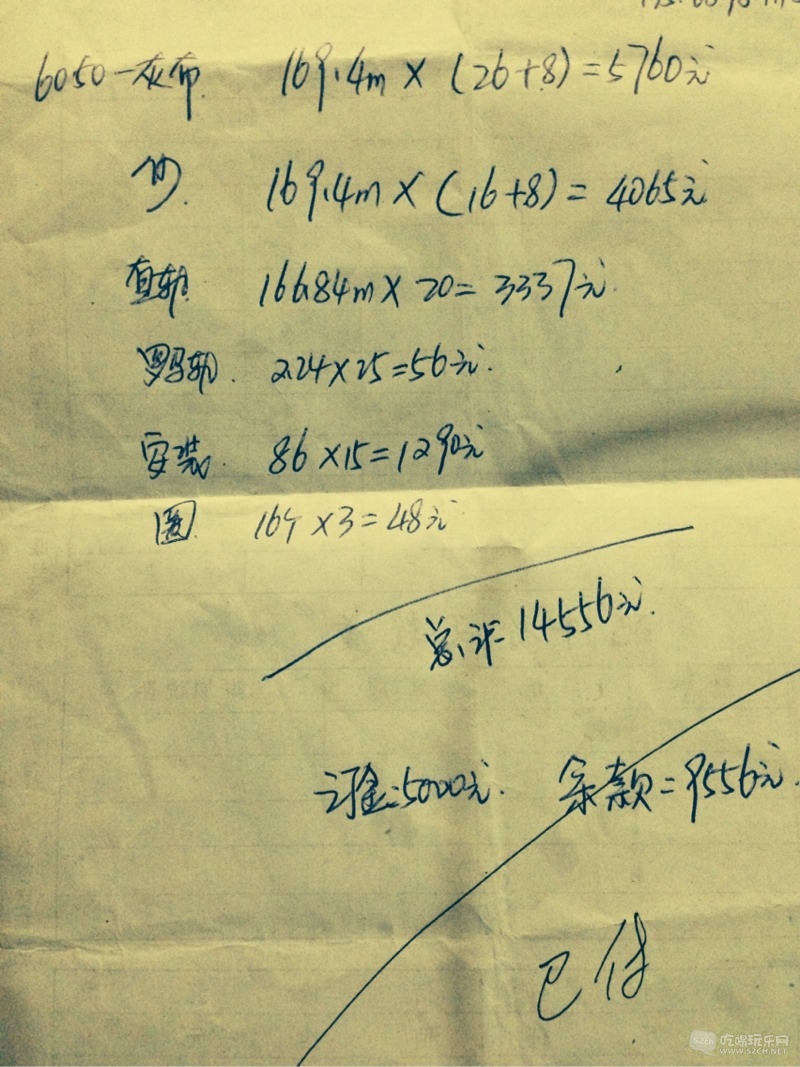 6050-灰布 169.4m×(26+8)=5760元
纱. 169.4m×(16+8)=4065元
直轨 166.84m×20=3337元
罗马轨. 2.24×25=56元.
安装. 86×15=1290元
圈. 16个×3=48元
总计=14556元.
订金:5000元. 余款=9556元.
已付
吃喝玩乐网
WWW.SZCH.NET